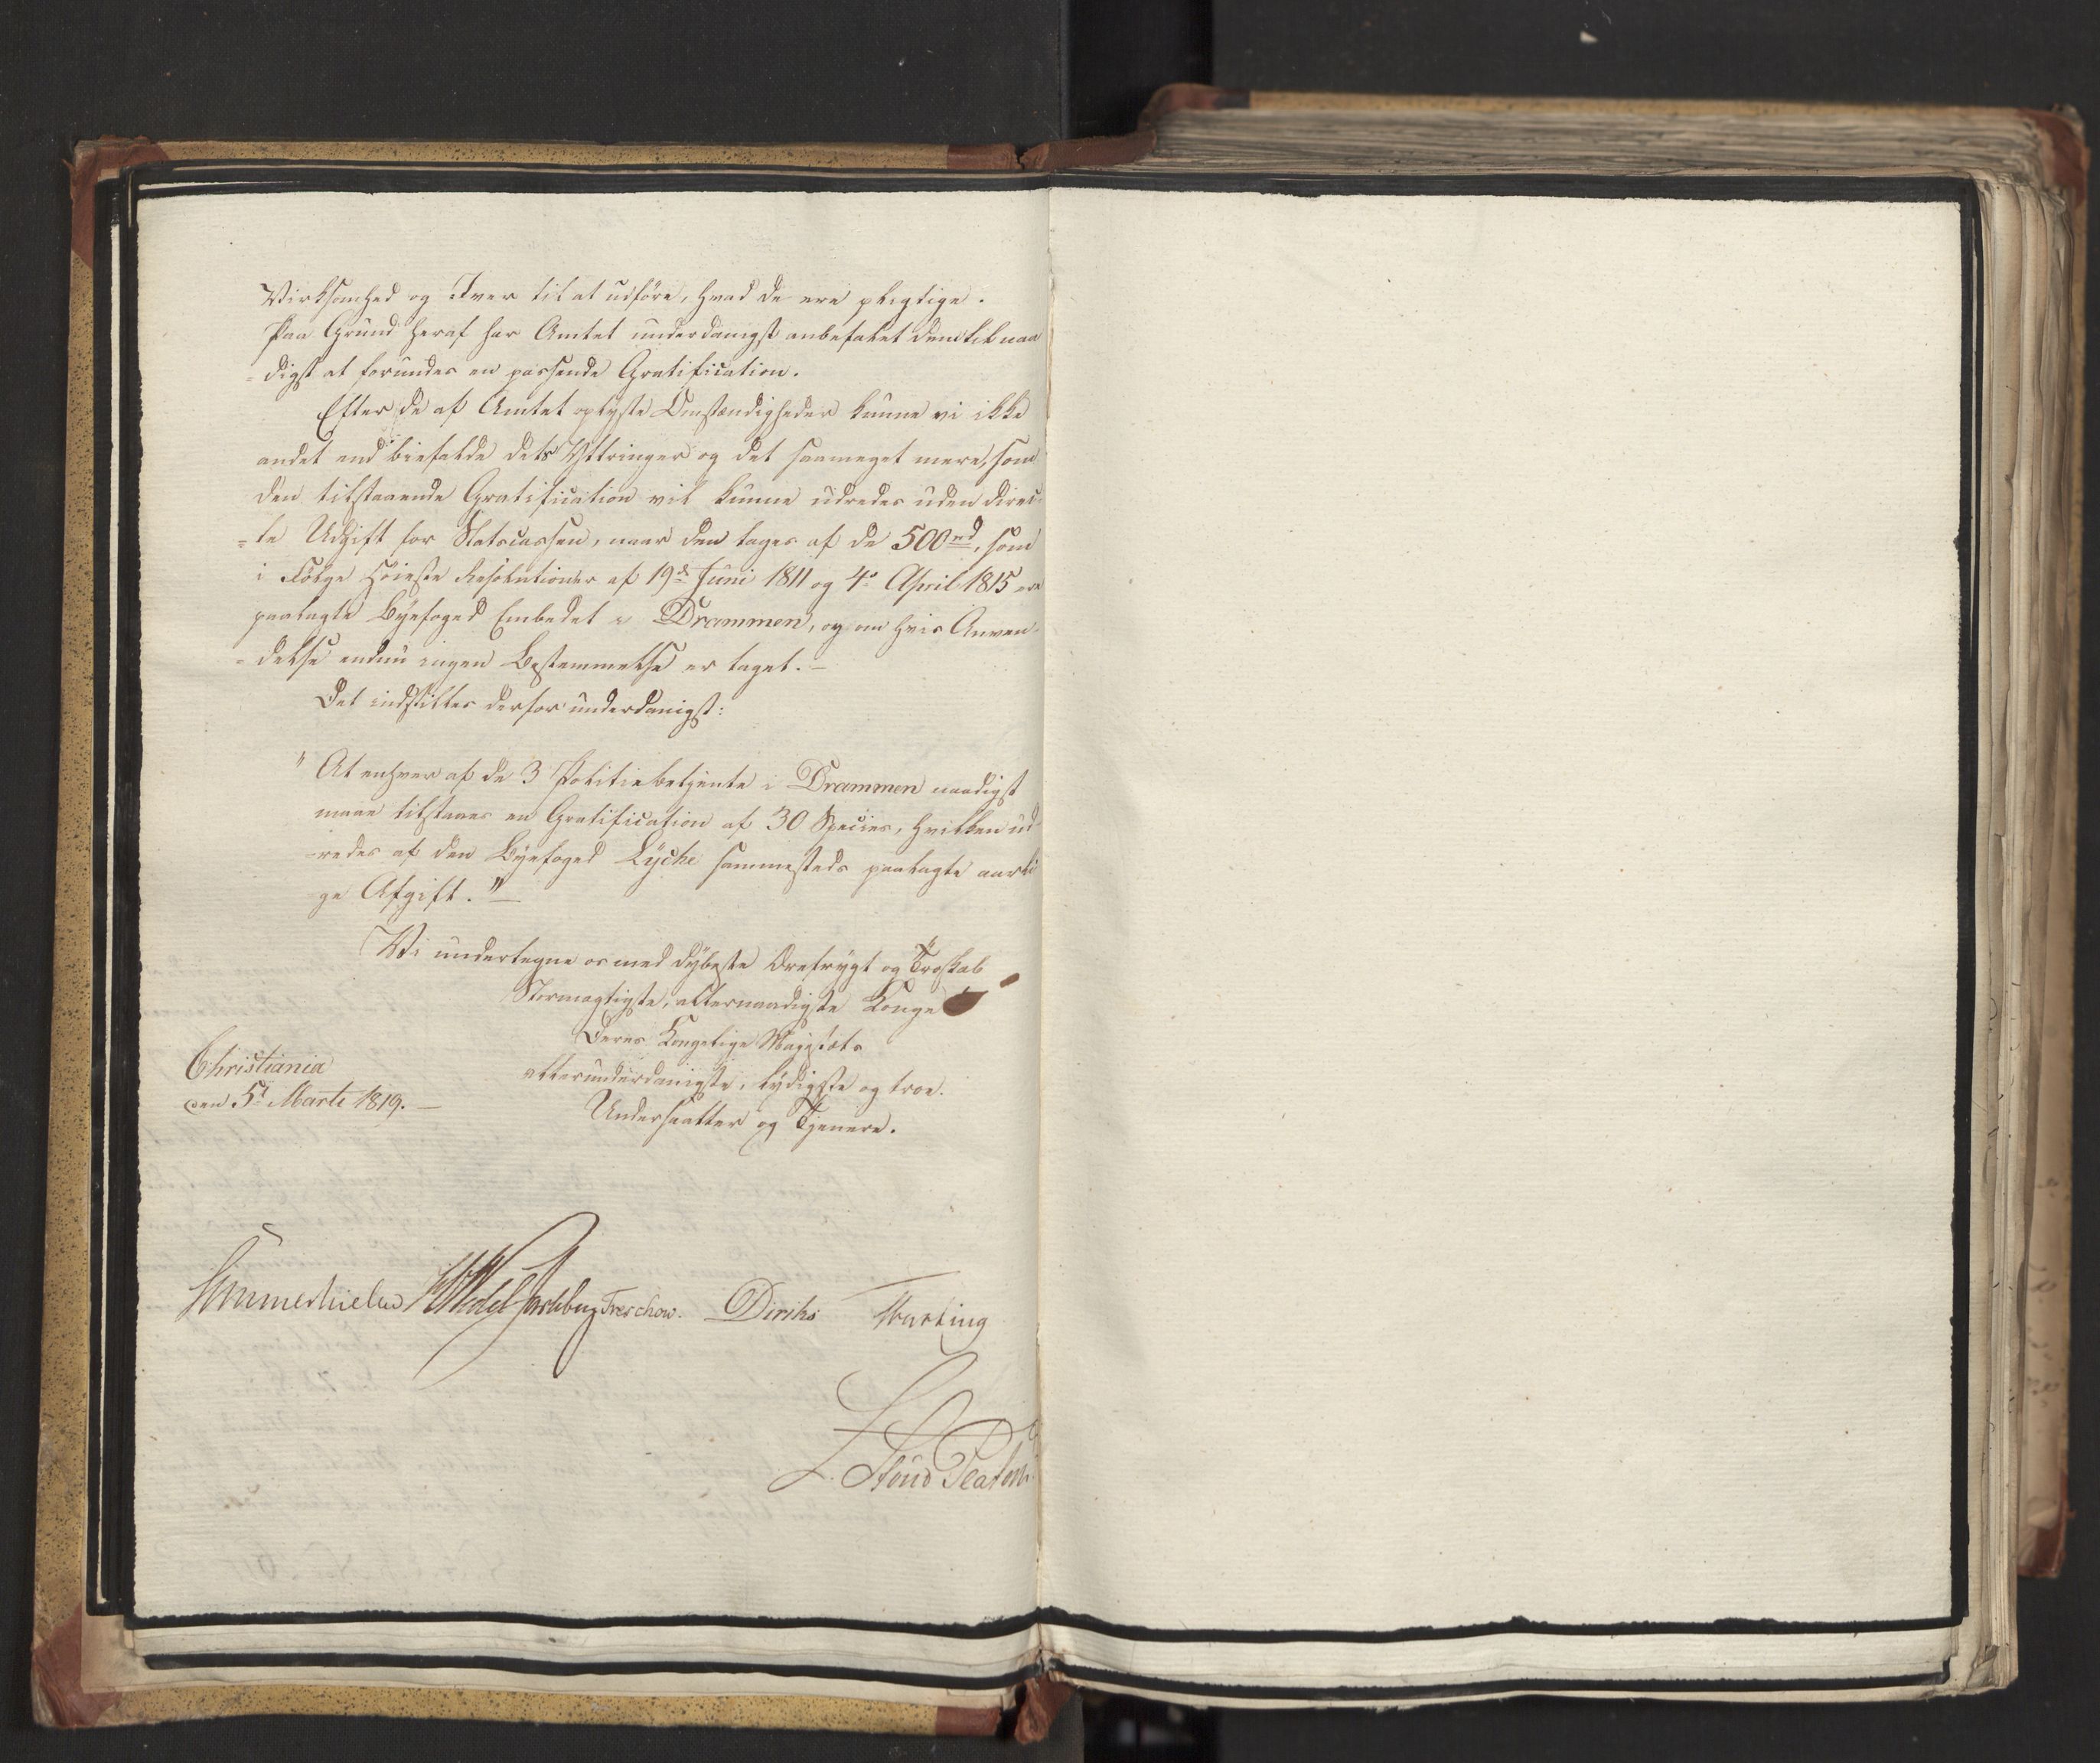 Virksomhed og Iver til at udføre, hvad de ere pligtige.
Paa Grund heraf har Amtet underdanigst anbefalet dem til naa
=digst at forundes en passende Gratification.
Efter de af Amtet oplyste Omstændigheder kunne vi ikke
andet end biefalde dets Yttringer og det saameget mere, som
den tilstaaende Gratification vil kunne udredes uden direc-
=te Udgift for Statscassen, naar den tages af de 500 rd, som
i Følge Høieste Resolutioner af 19de Juni 1811 og 4de April 1815 ere
paalagte Byefoged Embedet i Drammen, og om hvis Anven-
=delse endnu ingen Bestemmelse er taget.—
Det indstilles derfor underdanigst:
"At enhver af de 3 Politiebetjente i Drammen naadigst
maae tilstaaes en Gratification af 30 Species, hvilken ud-
=redes af den Byefoged Lyche sammesteds paalagte aarli
ge Afgift."—
Vi undertegne os med dybeste Ærefrygt og Troskab
Stormægtigste, allernaadigste Konge
Deres Kongelige Majestæts
allerunderdanigste, lydigste og troe
Undersaatter og Tjenere.
Christiania
den 5t Marti 1819.—
Sommerhielm Wedel Jarlsberg Treschow. Diriks Motzfeldt
L. Stoud Platou